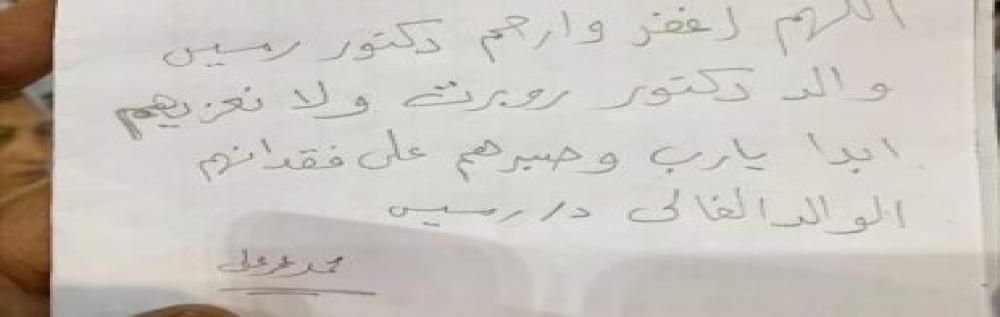 اللهم اغفر وارحم دكتور رمسيس
والد دكتور روبرت ولا نعزيهم
ابدا يارب وصبرهم على فقدانهم
الوالد الغالى د/ رمسيس
محمد عمر على